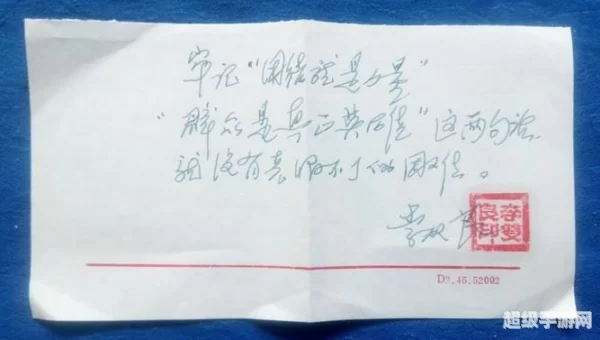 牢记“团结就是力量”
“群众是真正英雄”这两句话
就没有克服不了的困难。
李双良
李双良印
D2.45.52002
超级手游网